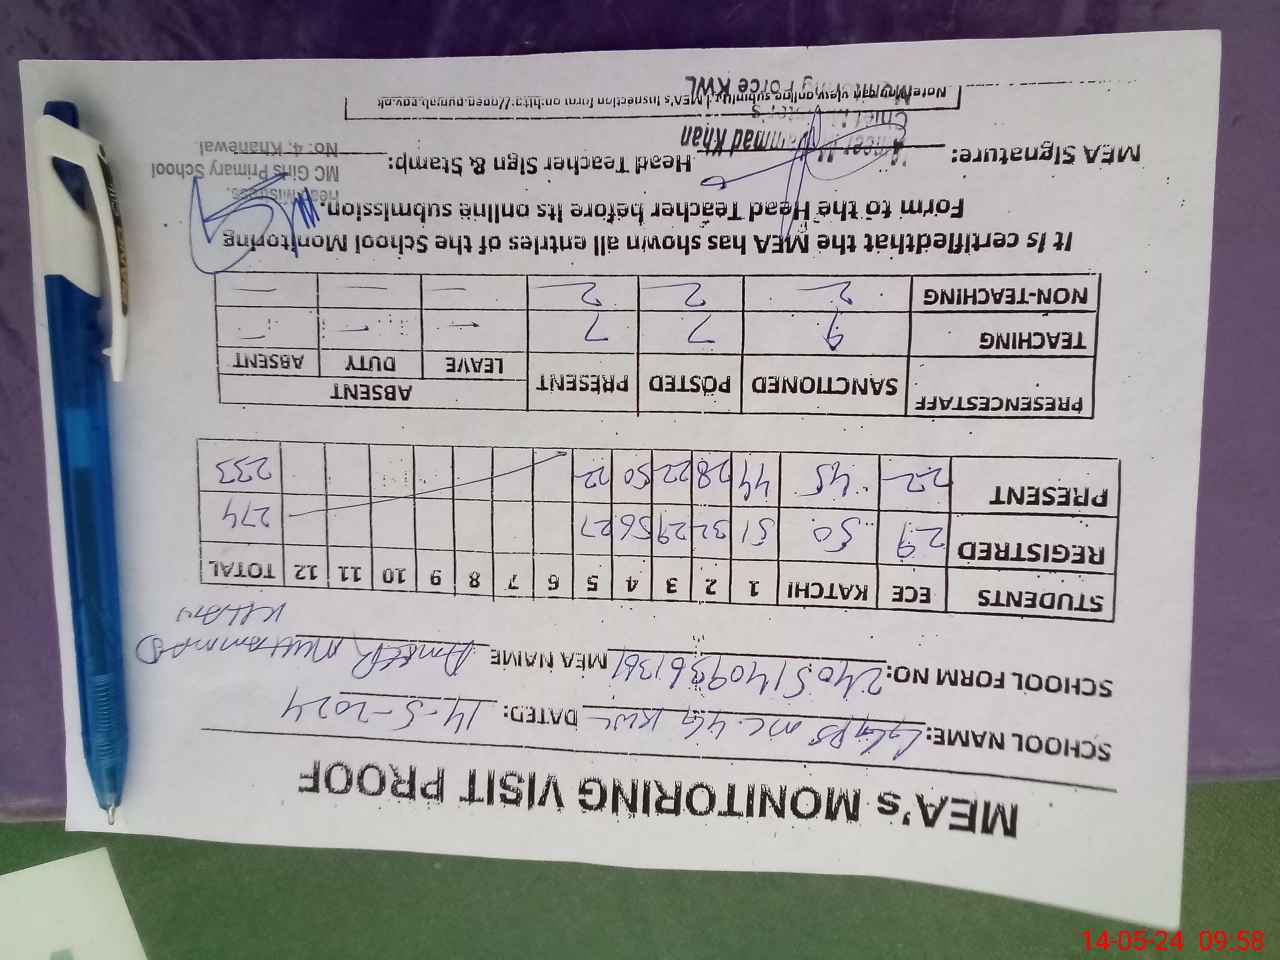 MEA's MONITORING VISIT PROOF
SCHOOL NAME: GGPS MC 4G KWL DATED: 14-5-2024
SCHOOL FORM NO: MEA NAME AMEER MUHAMMAD
KHAN
STUDENTS ECE KATCHI 1 2 3 4 5 6 7 8 9 10 11 12 TOTAL
REGISTRED 29 50 51 32 29 56 27 274
PRESENT 22 45 44 28 22 50 22 233
PRESENCESTAFF SANCTIONED POSTED PRESENT ABSENT
LEAVE DUTY ABSENT
TEACHING 9 7 7 — — —
NON-TEACHING 2 2 2 — — —
It is certifiedthat the MEA has shown all entries of the School Monitoring
Form to the Head Teacher before its online submission.
Head Mistress.
MEA Signature: Head Teacher Sign & Stamp:
MC Girls Primary School
No: 4, Khanewal.
Ameer Muhammad Khan
Monitoring Force KWL
14-05-24 09:58